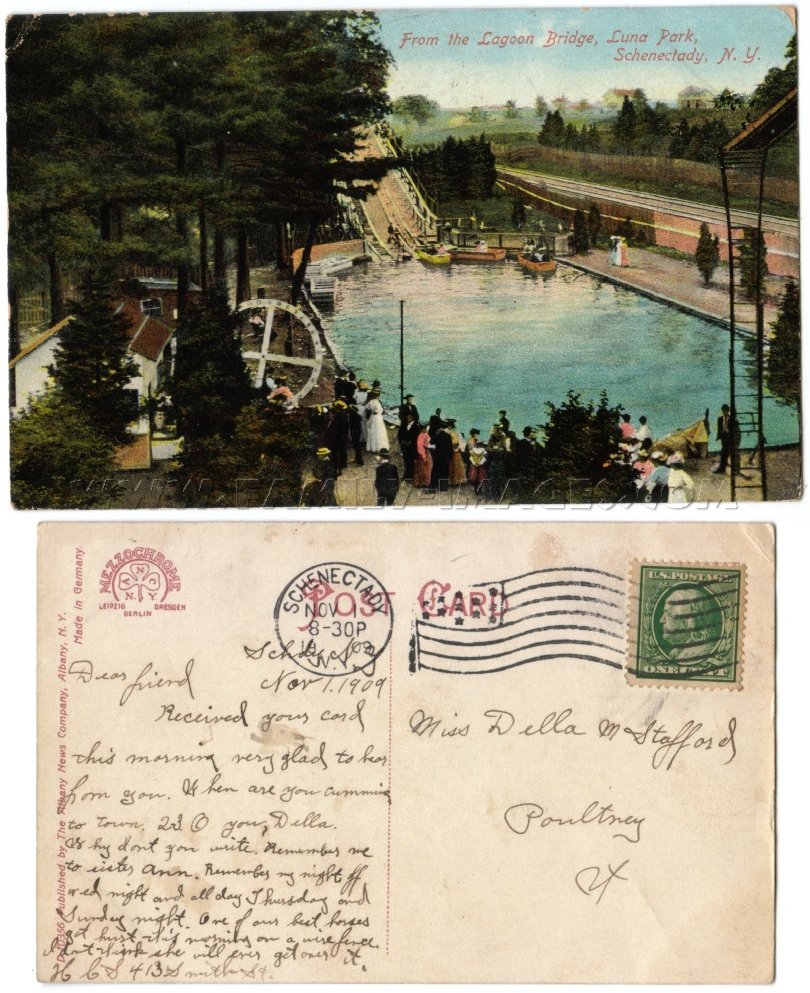 From the Lagoon Bridge, Luna Park,
Schenectady, N. Y.
WWW.FAMILY-IMAGES.COM
MEZZOCHROME
ANC
LEIPZIG DRESDEN
BERLIN
Made in Germany
D-10356 Published by The Albany News Company, Albany, N. Y.
POST CARD
SCHENECTADY
NOV 1
8-30P
N.Y.
U.S. POSTAGE
ONE CENT
Schdy, N.Y.
Nov 1. 1909
Dear friend
Received your card
this morning very glad to hear
from you. When are you cumming
to town. 23 O you, Della.
Why dont you write. Remember me
to sister Ann. Remember my night off
wed night and all day Thursday and
Sunday night. One of our best horses
got hurt this morning on a wire fence
I dont think she will ever get over it.
H C S 413 Smith St.
Miss Della M Stafford
Poultney